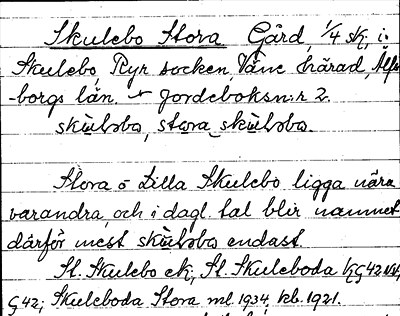 Skulebo Stora Gård, 1/4 sk, i
Skulebo, Ryr socken, Väne härad, Älfs
-borgs län. Jordeboksn:r 2.
skùləbo, stora skùləbo.
Stora o Lilla Skulebo ligga nära
varandra, och i dagl. tal blir namnet
därför mest skùləbo endast.
St. Skulebo ek; St. Skuleboda
G42; Skuleboda Stora ml. 1934, kb. 1921.